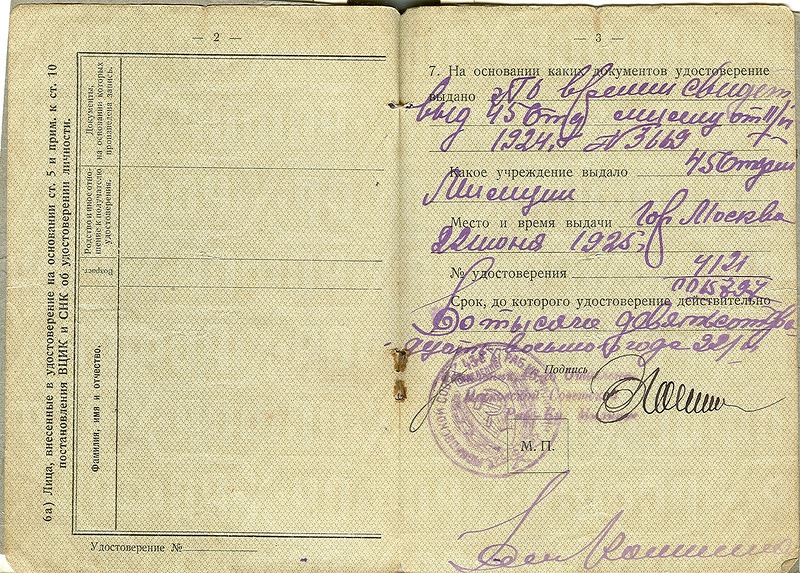 — 2 —
6а) Лица, внесенные в удостоверение на основании ст. 5 и прим. к ст. 10
постановления ВЦИК и СНК об удостоверении личности.
Документы,
на основании которых
произведена запись.
Родство и иное отно-
шение к получателю
удостоверения.
Возраст.
Фамилия, имя и отчество.
Удостоверение №
— 3 —
7. На основании каких документов удостоверение
выдано По времен свидет
выд 45 отд милиц от 11/VI
1924 г. № 3669
Какое учреждение выдало 45 Отдел
Милиции
Место и время выдачи гор Москва
22 июня 1925 г
№ удостоверения 4121
Срок, до которого удостоверение действительно
До тысяча девятьсот два
дцать восьмого года 22/VI
Подпись
М. П.